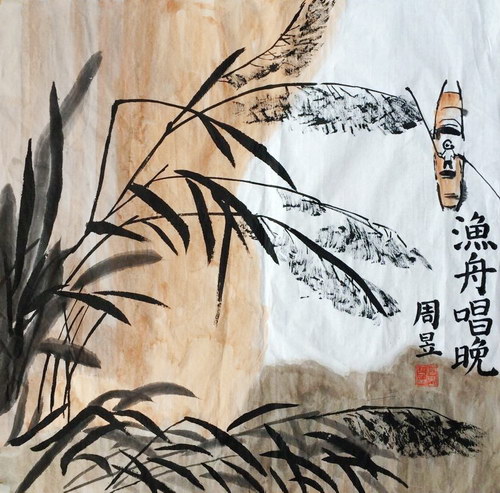 漁舟唱晚
周昱